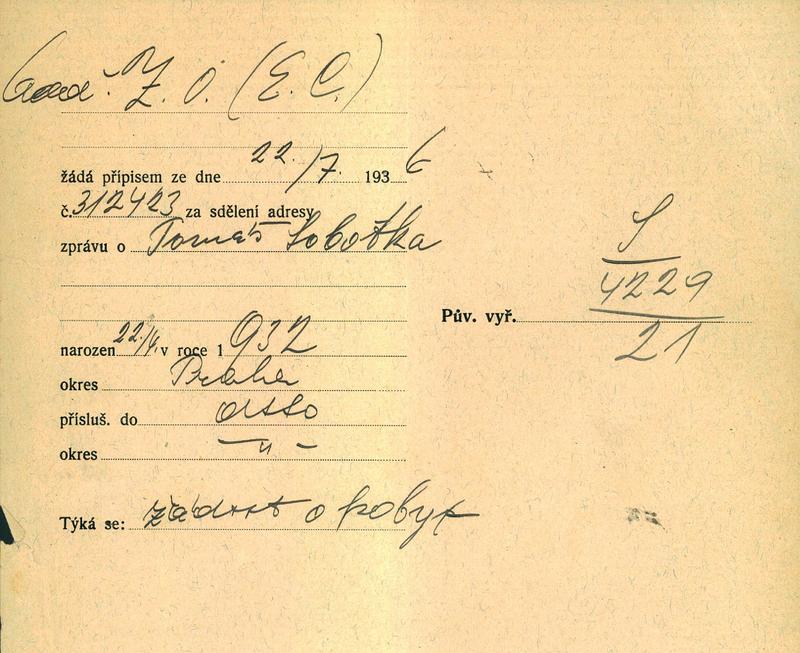 Z. Ú. (E. C.)
žádá přípisem ze dne 22./7. 1936
č. 312423 za sdělení adresy
zprávu o Tomáš Sobotka
narozen 22./4. v roce 1932
okres Praha
přísluš. do
okres — " —
Týká se: žádost o pobyt
S
4229
Pův. vyř.
21